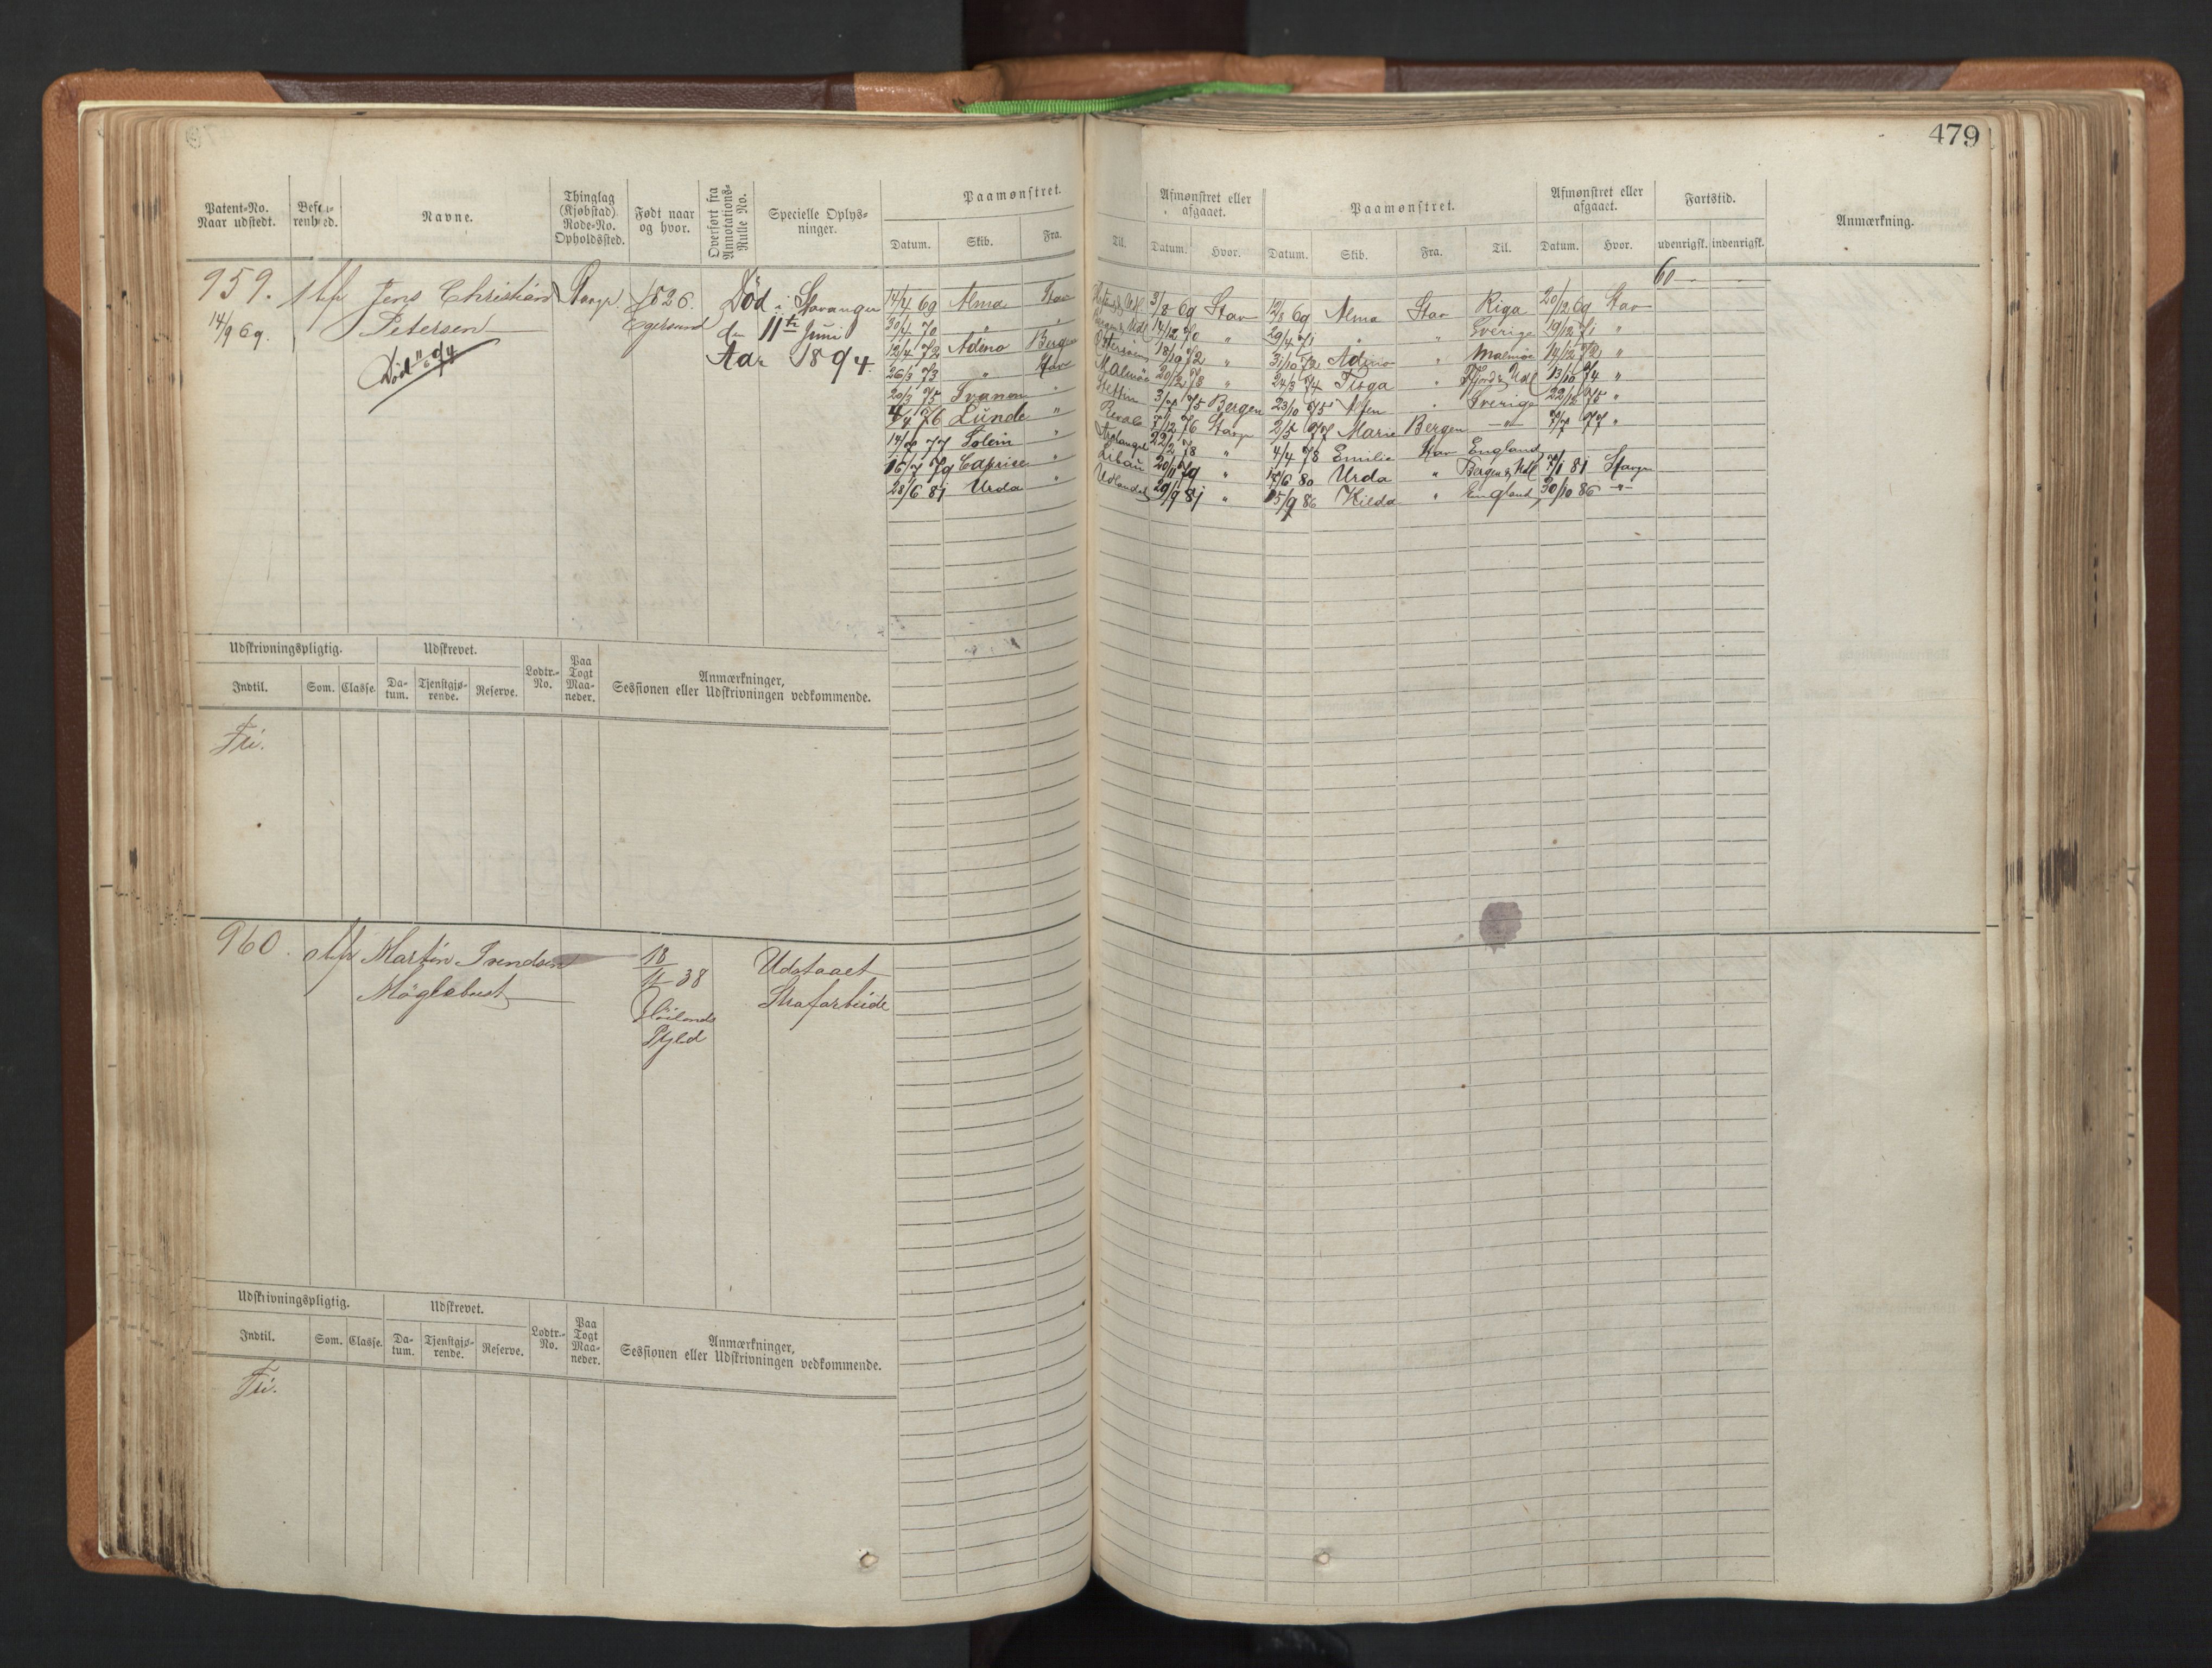 479
Patent-No. Naar udstedt.
Befarenhed.
Navne.
Thinglag (Kjøbstad) Rode-No. Opholdssted.
Født naar og hvor.
Overført fra Annotations-Rulle No.
Specielle Oplysninger.
Paamønstret.
Datum. Skib. Fra. Til.
Afmønstret eller afgaaet.
Datum. Hvor.
Paamønstret.
Datum. Skib. Fra. Til.
Afmønstret eller afgaaet.
Datum. Hvor.
Fartstid.
udenrigsk. indenrigsk.
Anmærkning.
60
959. Jens Christian 1826. Død i Stavanger
14/9 69. Petersen Egersund den 11te Juni
Død 11/6 94 Aar 1894.
14/4 69 Alma Stav 3/8 69 Stav 12/8 69 Alma Stav Riga 20/12 69 Stav
30/4 70 " " 14/12 70 " 29/4 71 " " Sverige 19/12 71 "
12/4 72 Adino Bergen 18/10 72 " 31/10 72 Adino " Malmöe 14/12 72 "
26/3 73 " Stav Malmöe 20/12 78 " 24/3 74 " 13/10 74 "
20/3 75 " Stettin 3/7 75 Bergen 23/10 75 " Sverige 22/12 75 "
4/4 76 Lunde " Reval 7/12 76 Stavgr 2/5 77 Marie Bergen —"— 7/7 77 "
14/7 77 Solein " Archangel 22/2 78 " 4/4 78 Emilie Stav England
16/7 79 Caprice " Libau 20/11 79 " 14/6 80 Urda " Bergen & Udl 7/1 81 Stavgr
28/6 81 Urda " Udlandet 29/9 81 " 15/9 86 Kilda " England 30/10 86 —"—
Udskrivningspligtig. Udskrevet. Lodtr.-No. Paa Togt Maaneder. Anmærkninger, Sessionen eller Udskrivningen vedkommende.
Indtil. Som. Classe. Datum. Tjenstgjørende. Reserve.
Fri.
960. Martin Svendsen 18/11 38 Udstaaet
Møglebust Høilands Strafarbeide
Pgld
Udskrivningspligtig. Udskrevet. Lodtr.-No. Paa Togt Maaneder. Anmærkninger, Sessionen eller Udskrivningen vedkommende.
Indtil. Som. Classe. Datum. Tjenstgjørende. Reserve.
Fri.